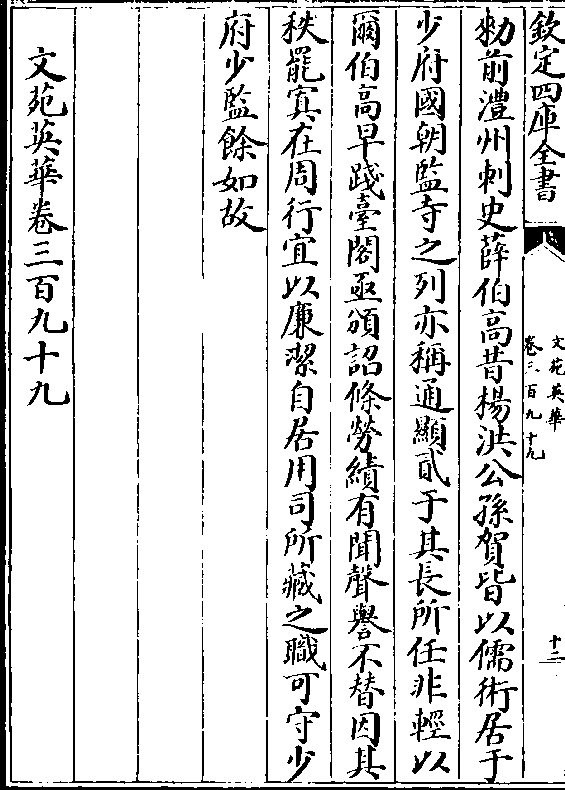 欽定四庫全書
文苑英華
卷三百九十九
十二
勑前澧州刺史薛伯高昔楊洪公孫賀皆以儒術居于
少府國朝監寺之列亦稱通顯貳于其長所任非輕以
爾伯高早踐臺閣亟頒詔條勞績有聞聲譽不替因其
秩罷寘在周行宜以廉潔自居用司所藏之職可守少
府少監餘如故
文苑英華卷三百九十九